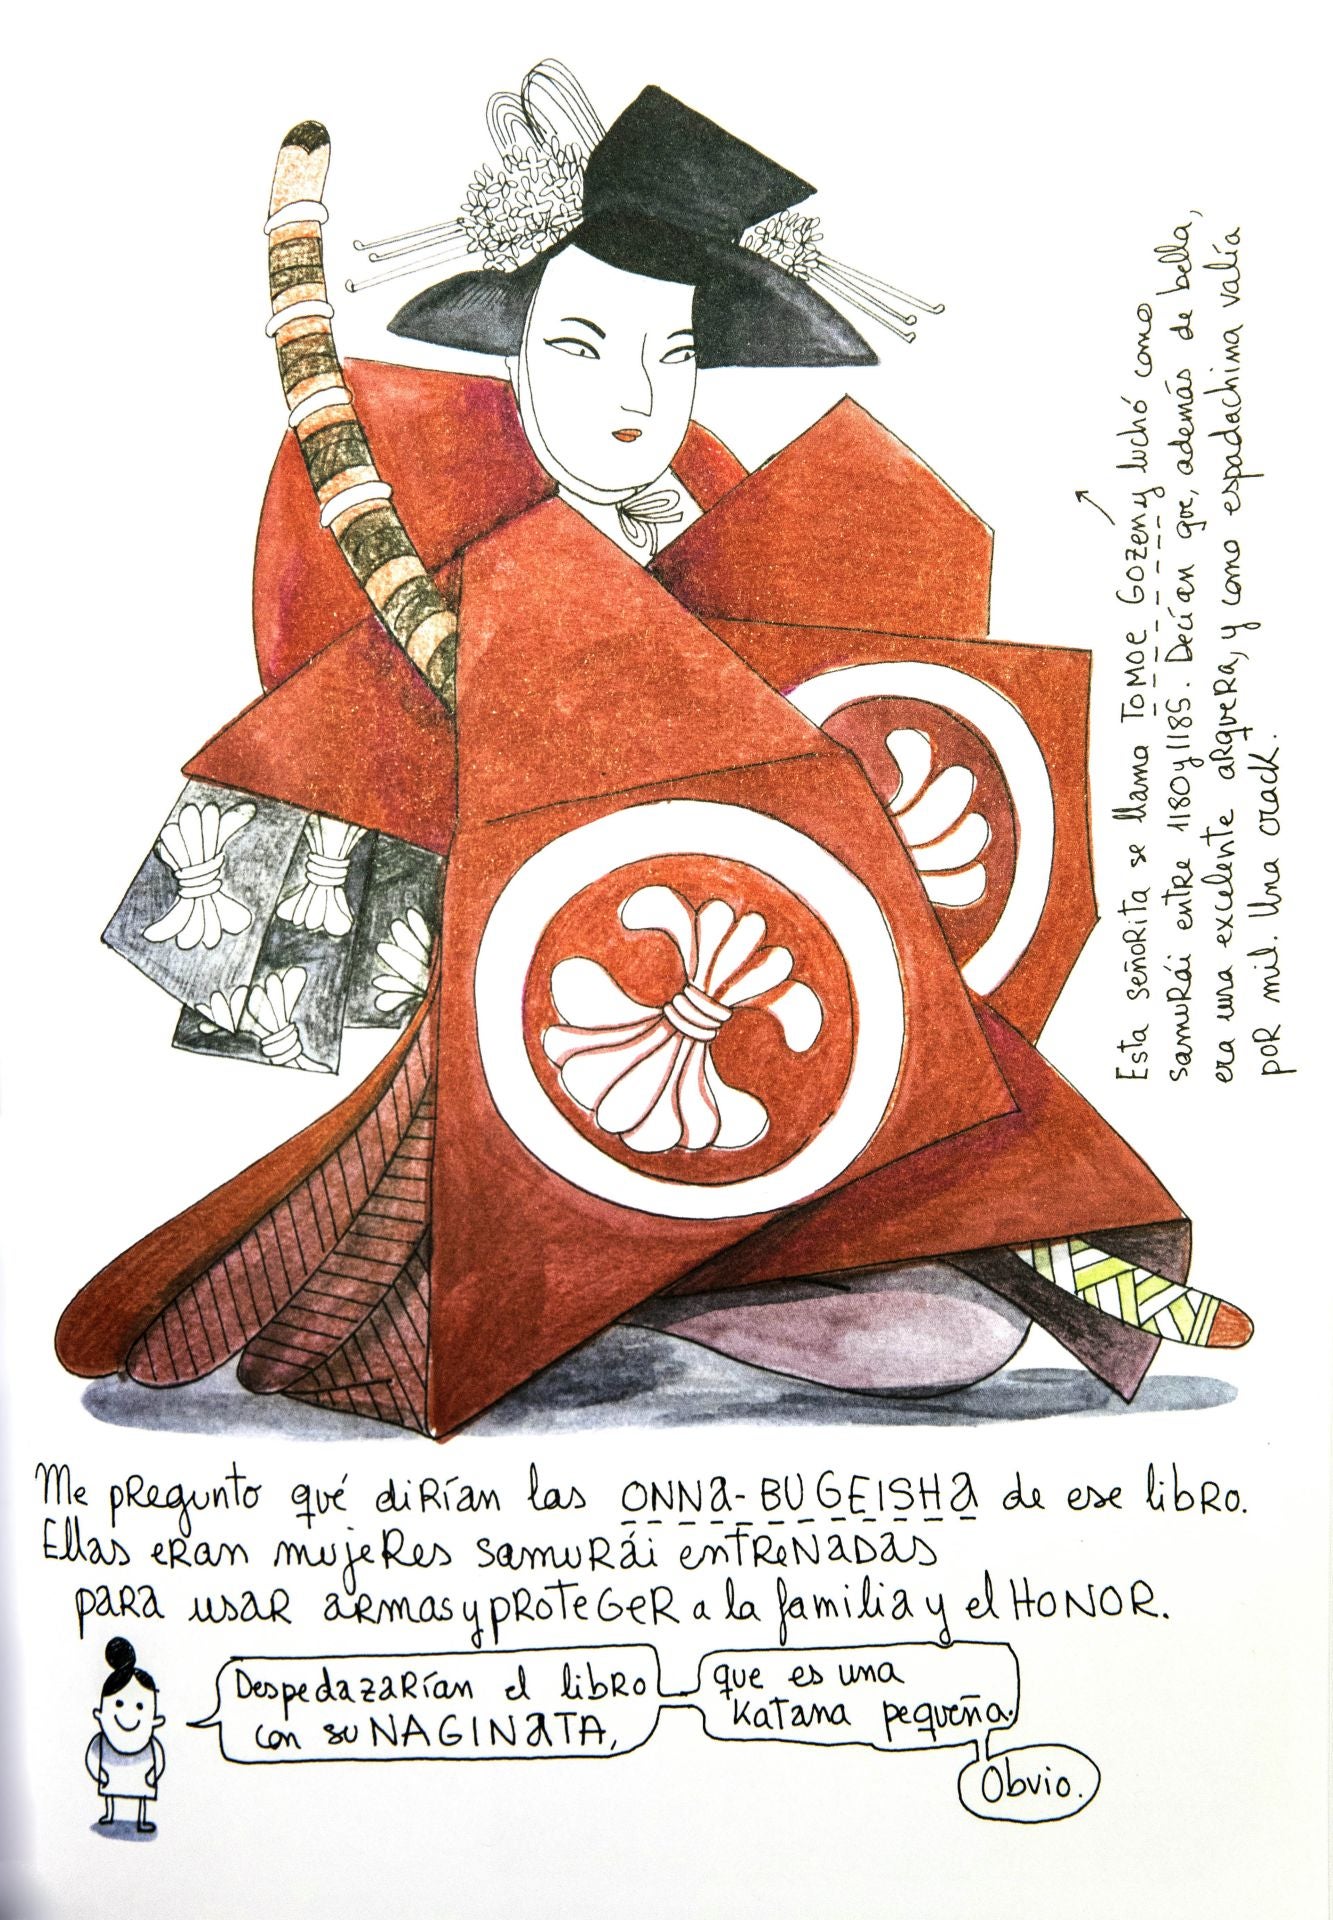 Esta señorita se llama TOMOE GOZEN y luchó como
samurái entre 1180 y 1185. Decían que, además de bella,
era una excelente arquera, y como espadachina valía
por mil. Una crack.
Me pregunto qué dirían las ONNA-BUGEISHA de ese libro.
Ellas eran mujeres samurái entrenadas
para usar armas y proteger a la familia y el HONOR.
Despedazarían el libro
con su NAGINATA,
que es una
katana pequeña.
Obvio.